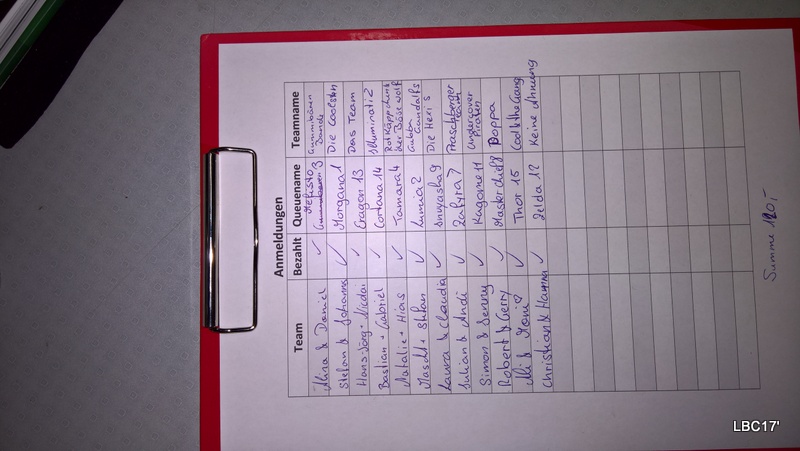 Anmeldungen
Team Bezahlt Queuename Teamname
Nina & Daniel ✓ Mefisto 3 Gummibären Bande
Stefan & Johanna ✓ Morgana 1 Die Coolsten
Hans-Jörg + Nicolai ✓ Eragon 13 Das Team
Bastian + Gabriel ✓ Cortana 14 Illuminati 2
Natalie + Mias ✓ Tamara 4 Rotkäppchen & der Böse Wolf
+ Stefan ✓ Lumia 2 Gandalfs
Laura & Claudia ✓ Inuyasha 9 Die Hexi's
Julian & Andi ✓ 7
Simon & Jenny ✓ Kagome 11 Undercover Piraten
Robert & Gerry ✓ Masterchief 8 Poppa
& ✓ Thor 15 Cool & the Gang
Christian & Hanna ✓ Zelda 12 Keine Ahnung
Summe 120,-
LBC17'